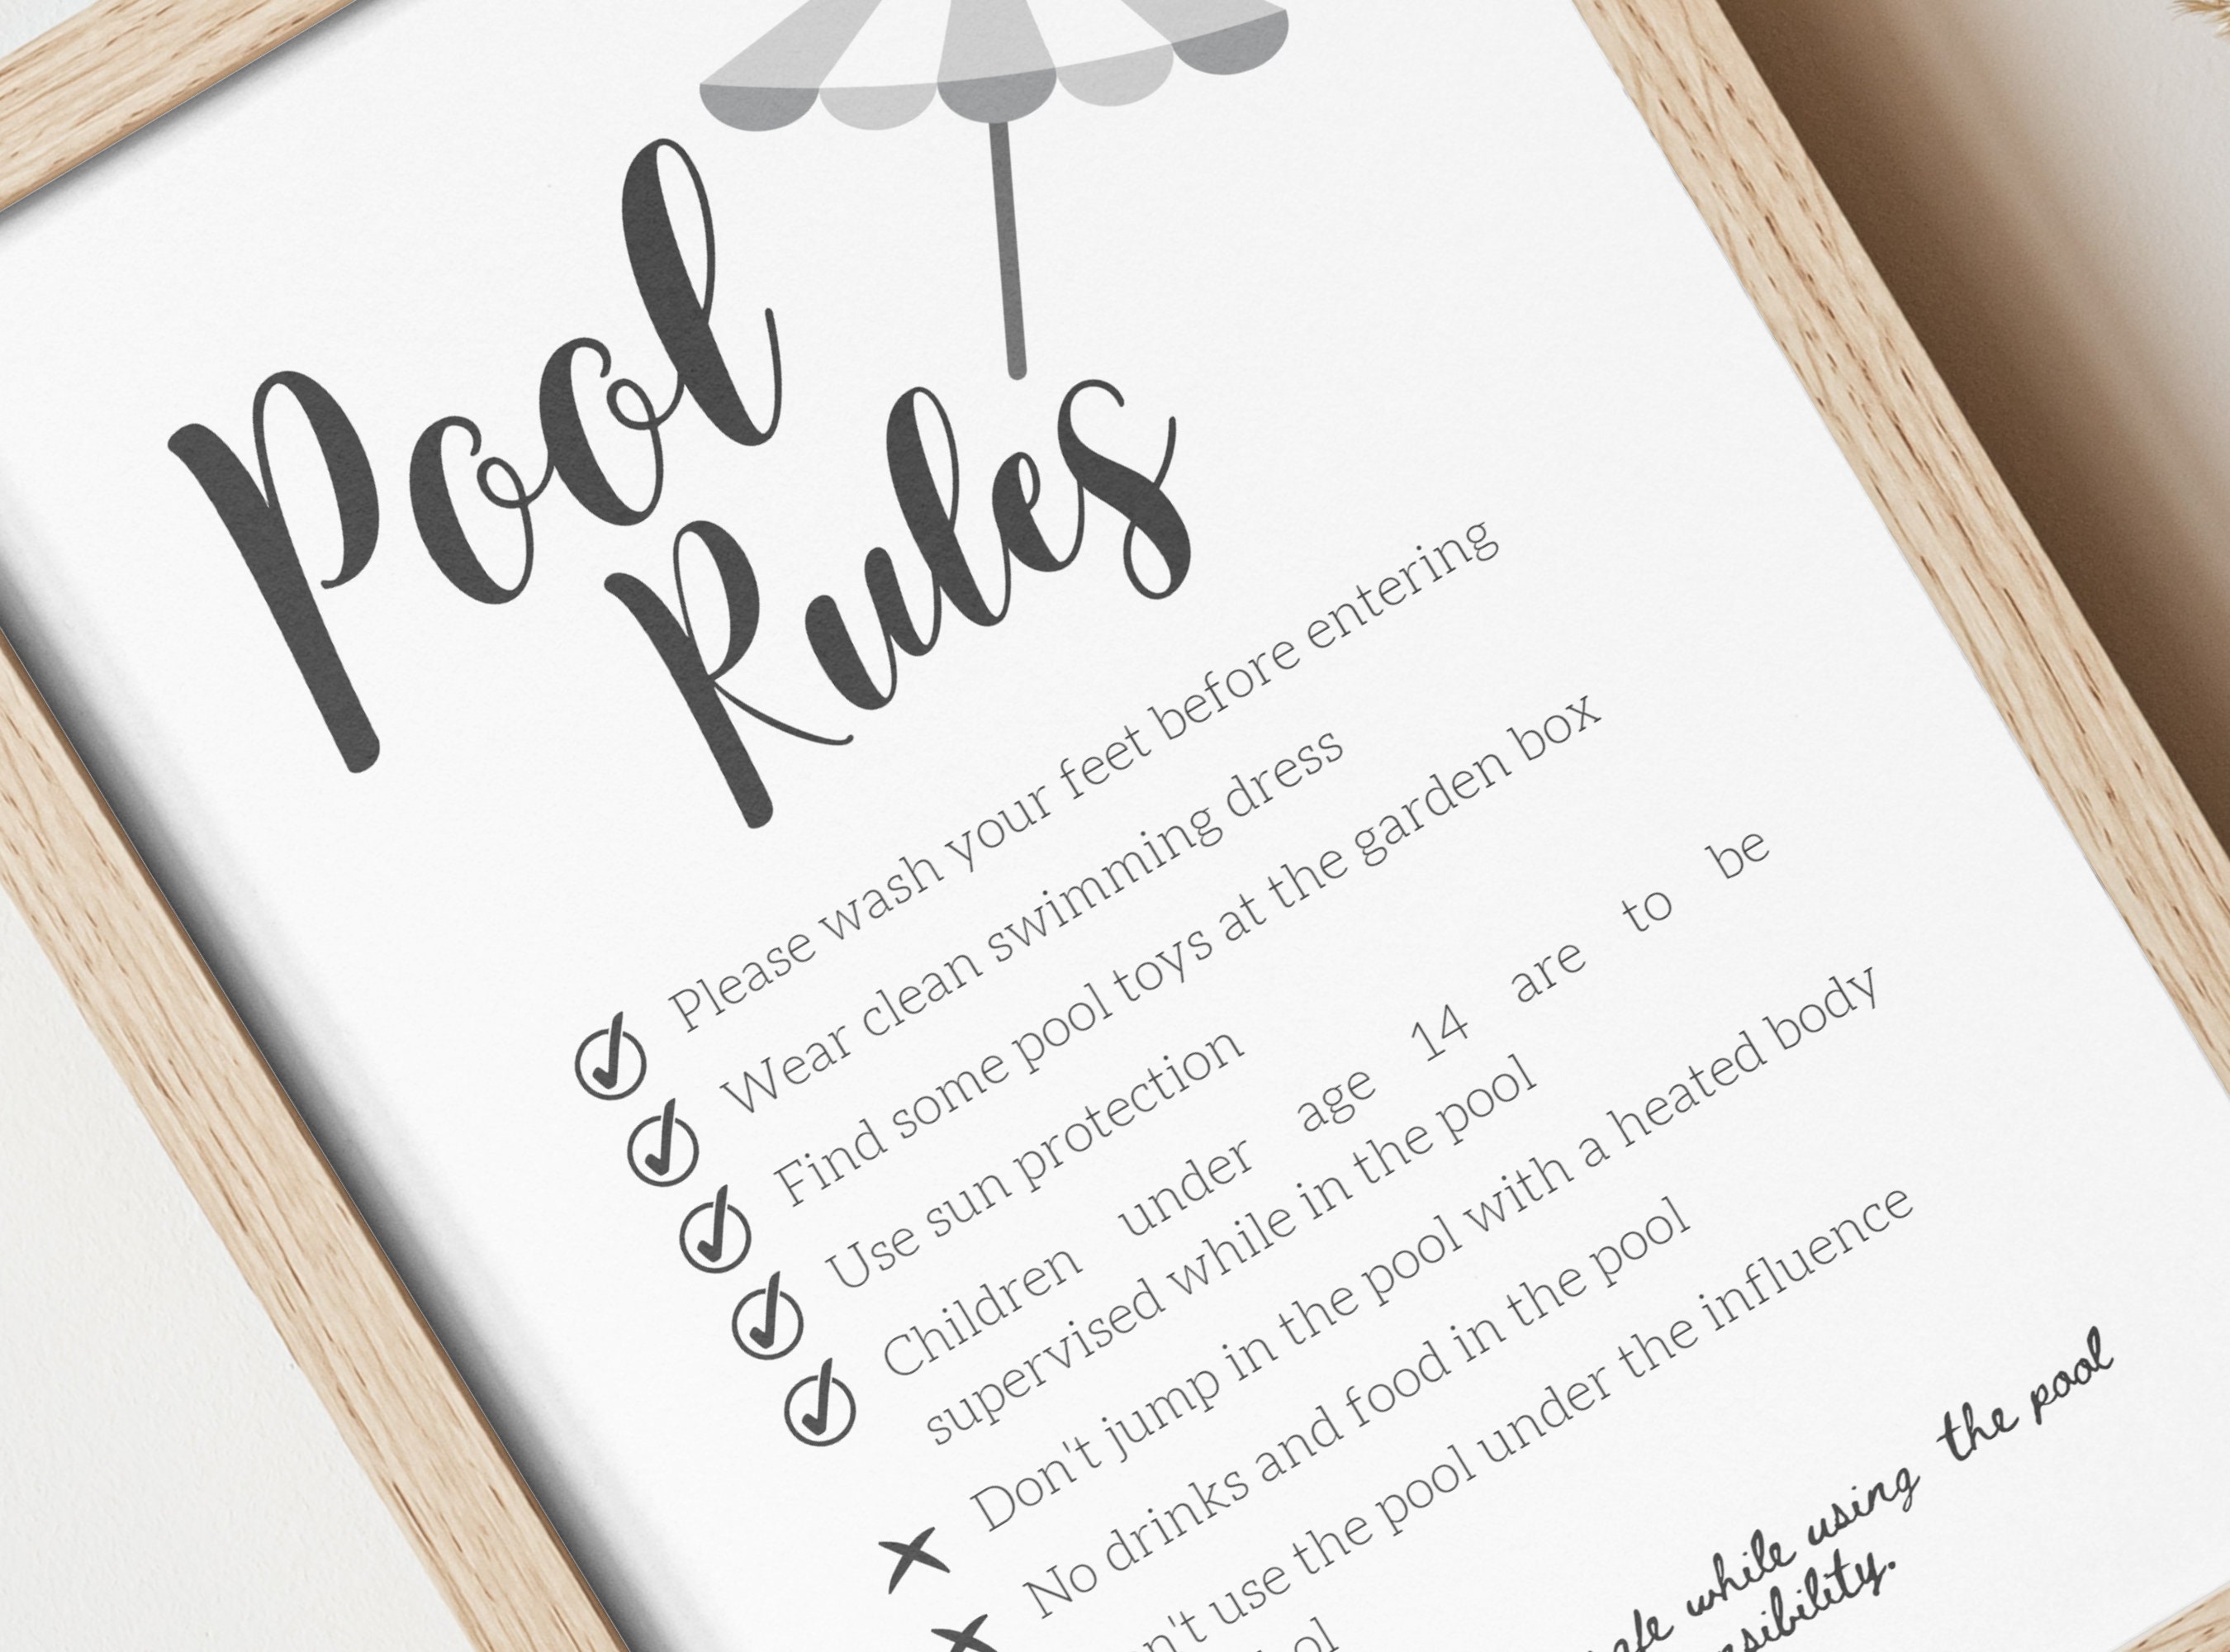 Pool
Rules
Please wash your feet before entering
Wear clean swimming dress
Find some pool toys at the garden box
Use sun protection
Children under age 14 are to be
supervised while in the pool
Don't jump in the pool with a heated body
No drinks and food in the pool
use the pool under the influence
while using the pool